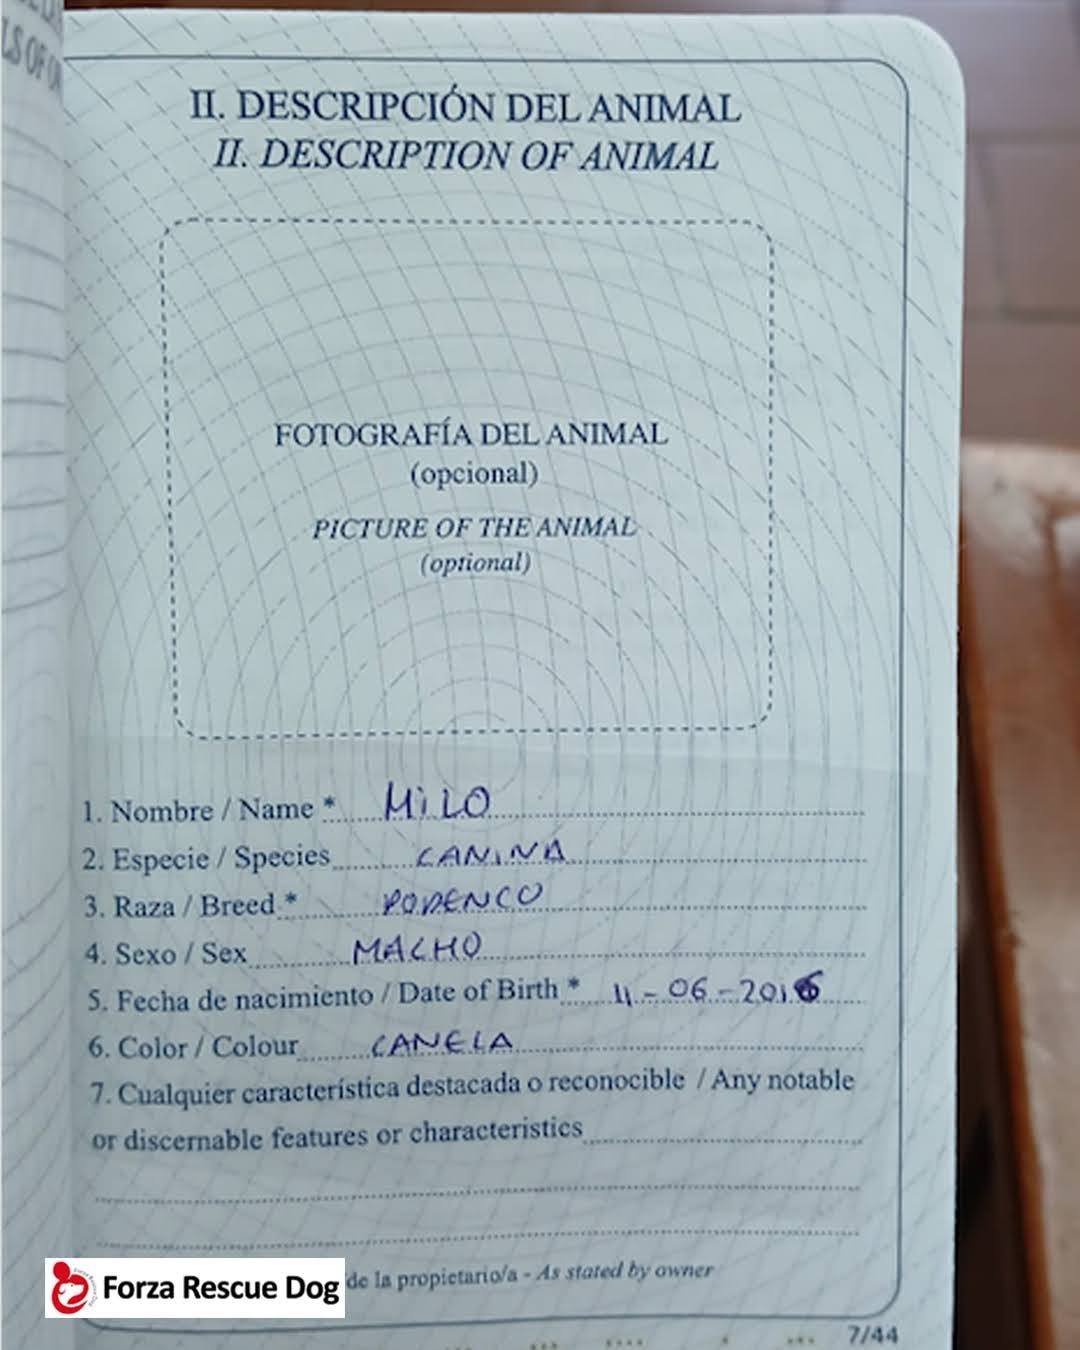 LS OF
II. DESCRIPCIÓN DEL ANIMAL
II. DESCRIPTION OF ANIMAL
FOTOGRAFÍA DEL ANIMAL
(opcional)
PICTURE OF THE ANIMAL
(optional)
1. Nombre / Name * MiLO
2. Especie / Species CANINA
3. Raza / Breed * PODENCO
4. Sexo / Sex MACHO
5. Fecha de nacimiento / Date of Birth * 11-06-2016
6. Color / Colour CANELA
7. Cualquier característica destacada o reconocible / Any notable
or discernable features or characteristics
de la propietario/a - As stated by owner
Forza Rescue Dog
7/44